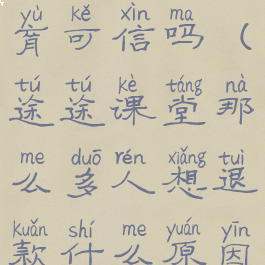 yù kě xìn ma
育可信吗（
tú tú kè táng nà
途途课堂那
me duō rén xiǎng tuì
么多人想退
kuǎn shí me yuán yīn
款什么原因